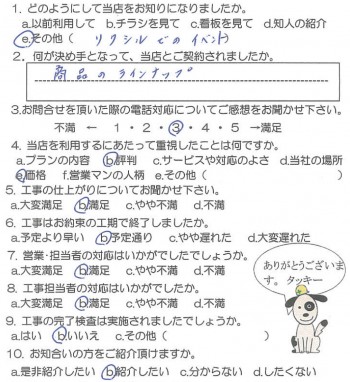 1. どのようにして当店をお知りになりましたか。
a.以前利用して b.チラシを見て c.看板を見て d.知人の紹介
e.その他( リクシルでのイベント)
2. 何が決め手となって、当店とご契約されましたか。
商品のラインナップ
3.お問合せを頂いた際の電話対応についてご感想をお聞かせ下さい。
不満 ← 1・2・3・4・5 →満足
4. 当店を利用するにあたって重視したことは何ですか。
a.プランの内容 b.評判 c.サービスや対応のよさ d.当社の場所
e.価格 f.営業マンの人柄 e.その他( )
5. 工事の仕上がりについてお聞かせ下さい。
a.大変満足 b.満足 c.やや不満 d.不満
6. 工事はお約束の工期で終了しましたか。
a.予定より早い b.予定通り c.やや遅れた d.大変遅れた
7. 営業・担当者の対応はいかがでしたでしょうか。
a.大変満足 b.満足 c.やや不満 d.不満
8. 工事担当者の対応はいかがでしたか。
a.大変満足 b.満足 c.やや不満 d.不満
9. 工事の完了検査は実施されましたでしょうか。
a.はい b.いいえ c.その他( )
10. お知合いの方をご紹介頂けますか。
a.是非紹介したい b.紹介したい c.分からない d.したくない
ありがとうございま
す。 タッキー